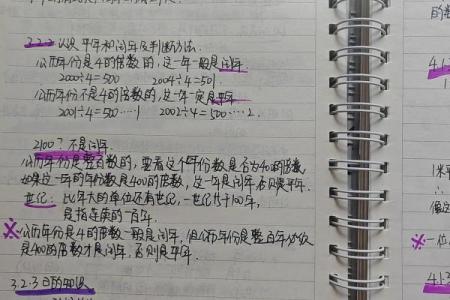 3.2.2 认识平年和闰年及判断方法.
公历年份是4的倍数的,这一年一般是闰年
2000÷4=500 2004÷4=501.
公历年份不是4的倍数的,这一年一定是平年
2001÷4=500……1 2002÷4=500……2.
2100?不是闰年.
公历年份是整百数的,要看这个年份数是否为400的倍数,
如果这一年的年份数是400的倍数,这一年是闰年否则是平年.
世纪: 比年大的单位还有世纪,一世纪等于100年,
是指连续的一百年.
※公历年份是4的倍数一般是闰年,但公历年份是整百年必须
是400的倍数才是闰年.否则是平年.
3.2.3日的知识
的
4.1.3
1米
∴
※一位
4.1.3